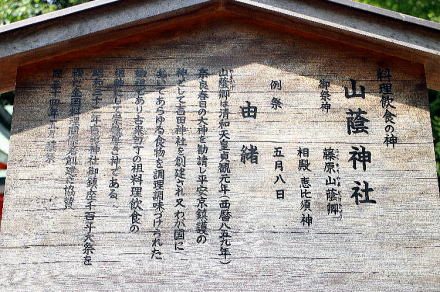 料理飲食の神
山蔭神社
御祭神 藤原山蔭卿
相殿 恵比須神
例祭 五月八日
由緒
山蔭卿は清和天皇貞観元年(西暦八五九年)
奈良春日の大神を勧請し平安京鎮護の
神として吉田神社を創建され又わが国に
於てあらゆる食物を調理調味づけられた
始祖であり古来包丁の祖料理飲食の
祖神として崇敬き神である
昭和三十二年吉田神社御鎮座千百年大祭を